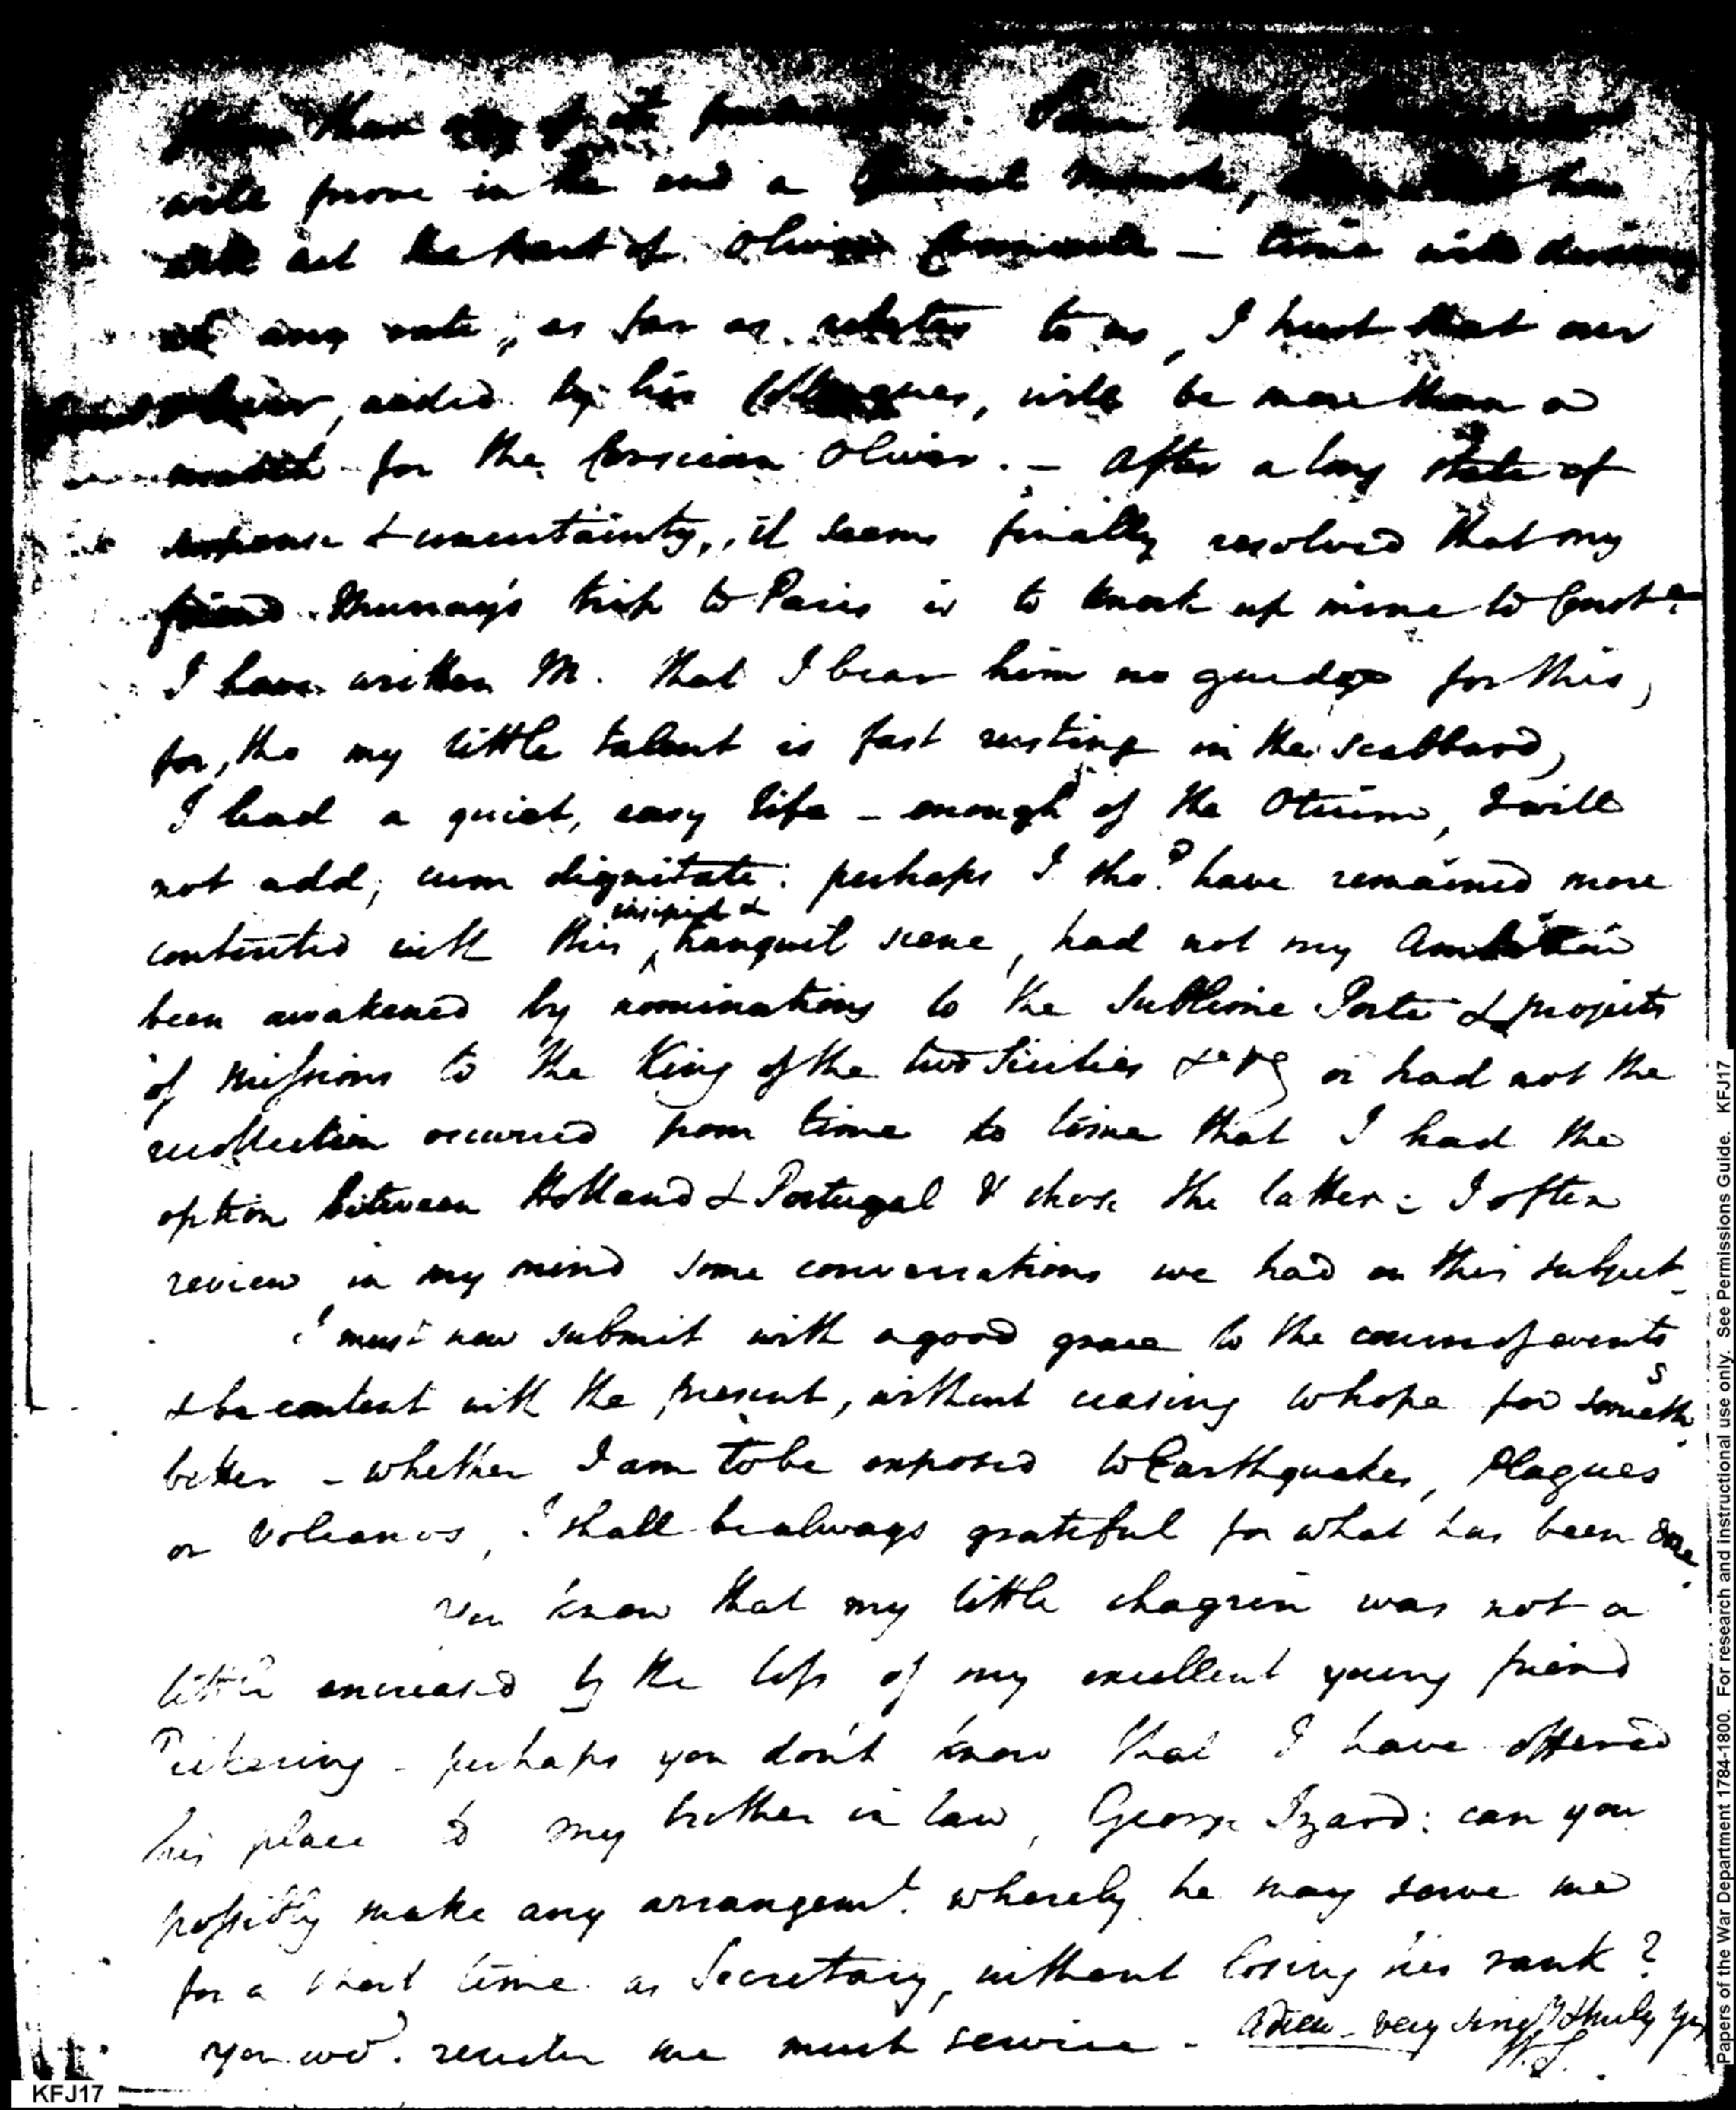 than any of its
will prove in the end a General Monck,
will act the part of Oliver Cromwell – time will
at any rate, as far as relates to us, I trust that our
Oliver, aided by his Colleagues, will be more than a
match for the Corsican Oliver. – After a long state of
suspense & uncertainty, it seems finally resolved that my
friend Murray's trip to Paris is to knock up mine to Const.e
I have written M. that I bear him no grudge for this,
for, tho my little talent is fast rusting in the scabbard,
I lead a quiet, easy life – enough of the Otium, I will
not add, cum dignitate: perhaps I sho.d have remained more
contented with this insipid & tranquil scene, had not my Ambition
been awakened by nominations to the Sublime Porte & projects
of Missions to the King of the two Sicilies &c &c or had not the
recollection occurred from time to time that I had the
option between Holland & Portugal & chose the latter: I often
review in my mind some conversations we had on this subject
I must now submit with a good grace to the course of events
& be content with the present, without ceasing to hope for someth.s
better – whether I am to be exposed to Earthquakes, Plagues
or Volcanos, I shall be always grateful for what has been done.
You know that my little chagrin was not a
little encreased by the loss of my excellent young friend
Pickering – perhaps you don't know that I have offered
his place to my brother in law, George Izard: can you
possibly make any arrangem.t whereby he may serve me
for a short time as Secretary, without losing his rank?
You wo.d render me much service – Adieu – very sinc.y & truly yrs
W.S.
KFJ17
Papers of the War Department 1784-1800. For research and instructional use only. See Permissions Guide. KFJ17